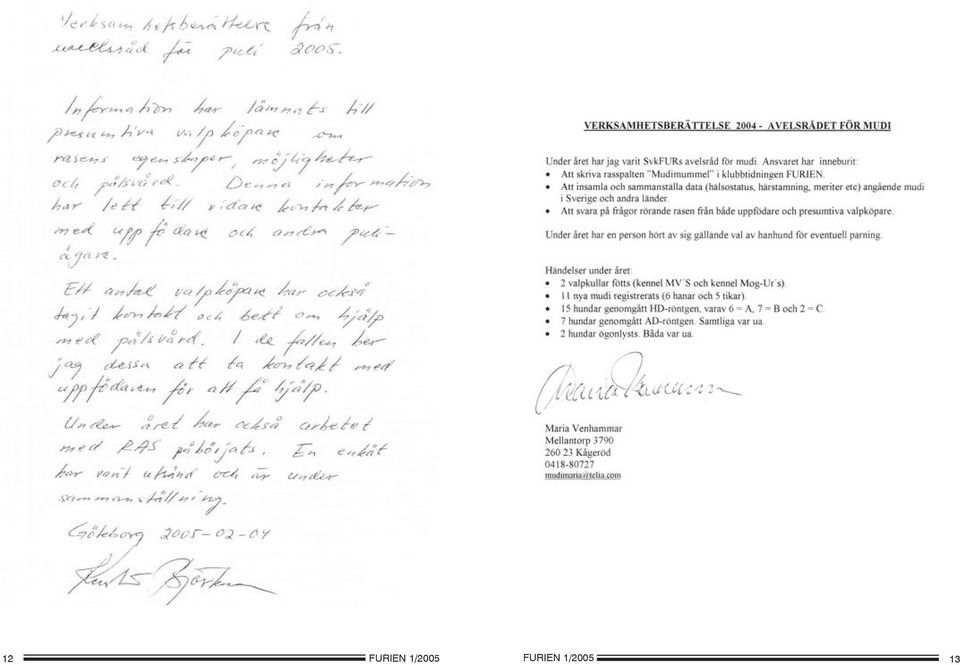 Verksamhetsberättelse från
avelsråd för puli 2005.
Information har lämnats till
presumtiva valpköpare om
rasens egenskaper, möjligheter
och pälsvård. Denna information
har lett till vidare kontakter
med uppfödare och andra puli-
ägare.
Ett antal valpköpare har också
tagit kontakt och bett om hjälp
med pälsvård. I de fallen ber
jag dessa att ta kontakt med
uppfödaren för att få hjälp.
Under året har också arbetet
med RAS påbörjats. En enkät
har varit utsänd och är under
sammanställning.
Göteborg 2005-02-04
12 FURIEN 1/2005
VERKSAMHETSBERÄTTELSE 2004 - AVELSRÅDET FÖR MUDI
Under året har jag varit SvkFURs avelsråd för mudi. Ansvaret har inneburit:
• Att skriva rasspalten "Mudimummel" i klubbtidningen FURIEN.
• Att insamla och sammanställa data (hälsostatus, härstamning, meriter etc) angående mudi
i Sverige och andra länder.
• Att svara på frågor rörande rasen från både uppfödare och presumtiva valpköpare.
Under året har en person hört av sig gällande val av hanhund för eventuell parning.
Händelser under året:
• 2 valpkullar fötts (kennel MV´S och kennel Mog-Ur´s).
• 11 nya mudi registrerats (6 hanar och 5 tikar).
• 15 hundar genomgått HD-röntgen, varav 6 = A, 7 = B och 2 = C.
• 7 hundar genomgått AD-röntgen. Samtliga var ua.
• 2 hundar ögonlysts. Båda var ua.
Maria Venhammar
Maria Venhammar
Mellantorp 3790
260 23 Kågeröd
0418-80727
mudimaria@telia.com
FURIEN 1/2005 13